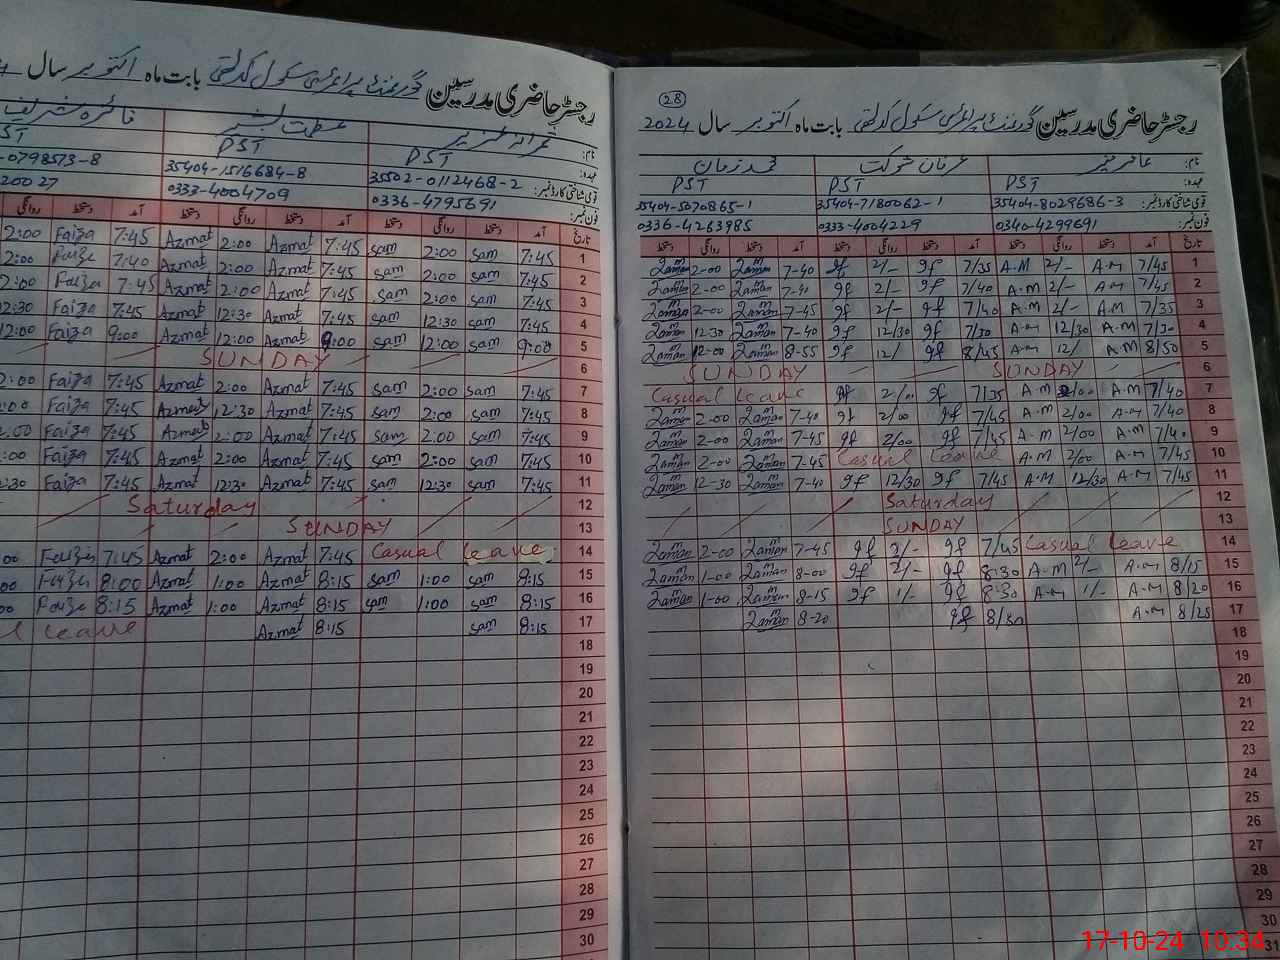 رجسٹر حاضری مدرسین گورنمنٹ پرائمری سکول کدلتھی بابت ماہ اکتوبر سال
نام: عمرانہ عزیز عظمت بشیر فائزہ شریف
عہدہ: PST PST PST
قومی شناختی کارڈ نمبر: 35502-0112468-2 35404-1516684-8 -0798573-8
فون نمبر: 0336-4795691 0333-4004709 20027
تاریخ آمد دستخط روانگی دستخط آمد دستخط روانگی دستخط آمد دستخط روانگی
2:00 Faiza 7:45 Azmat 2:00 Azmat 7:45 sam 2:00 sam 7:45 1
2:00 Faiza 7:40 Azmat 2:00 Azmat 7:45 sam 2:00 sam 7:45 2
2:00 Faiza 7:45 Azmat 2:00 Azmat 7:45 sam 2:00 sam 7:45 3
12:30 Faiza 7:45 Azmat 12:30 Azmat 7:45 sam 12:30 sam 7:45 4
12:00 Faiza 9:00 Azmat 12:00 Azmat 9:00 sam 12:00 sam 9:00 5
SUNDAY 6
2:00 Faiza 7:45 Azmat 2:00 Azmat 7:45 sam 2:00 sam 7:45 7
:00 Faiza 7:45 Azmat 12:30 Azmat 7:45 sam 2:00 sam 7:45 8
2:00 Faiza 7:45 Azmat 2:00 Azmat 7:45 sam 2:00 sam 7:45 9
:00 Faiza 7:45 Azmat 2:00 Azmat 7:45 sam 2:00 sam 7:45 10
2:30 Faiza 7:45 Azmat 12:30 Azmat 7:45 sam 12:30 sam 7:45 11
Saturday 12
SUNDAY 13
00 Faiza 7:45 Azmat 2:00 Azmat 7:45 Casual leave 14
00 Faiza 8:00 Azmat 1:00 Azmat 8:15 sam 1:00 sam 8:15 15
00 Faiza 8:15 Azmat 1:00 Azmat 8:15 sam 1:00 sam 8:15 16
l leave Azmat 8:15 sam 8:15 17
18
19
20
21
22
23
24
25
26
27
28
29
30
28
رجسٹر حاضری مدرسین گورنمنٹ پرائمری سکول کدلتھی بابت ماہ اکتوبر سال 2024
نام: عرفان شوکت محمد زمان
عہدہ: PST PST PST
قومی شناختی کارڈ نمبر: 35404-8029686-3 35404-7180062-1 35404-5070865-1
فون نمبر: 0340-4299691 0333-4004229 0336-4263985
تاریخ آمد دستخط روانگی دستخط آمد دستخط روانگی دستخط آمد دستخط روانگی دستخط
Zaman 2-00 Zaman 7-40 gf 2/- gf 7/35 A.M 2/- A.M 7/45 1
Zaman 2-00 Zaman 7-40 gf 2/- gf 7/40 A.M 2/- A.M 7/45 2
Zaman 2-00 Zaman 7-45 gf 2/- gf 7/40 A.M 2/- A.M 7/35 3
Zaman 12-30 Zaman 7-40 gf 12/30 gf 7/30 A.M 12/30 A.M 7/30 4
Zaman 12-00 Zaman 8-55 gf 12/ gf 8/45 A.M 12/ A.M 8/50 5
SUNDAY SUNDAY 6
Casual leave gf 2/00 gf 7/35 A.M 2/00 A.M 7/40 7
Zaman 2-00 Zaman 7-40 gf 2/00 gf 7/45 A.M 2/00 A.M 7/40 8
Zaman 2-00 Zaman 7-45 gf 2/00 gf 7/45 A.M 2/00 A.M 7/40 9
Zaman 2-00 Zaman 7-45 Casual leave A.M 2/00 A.M 7/45 10
Zaman 12-30 Zaman 7-40 gf 12/30 gf 7/45 A.M 12/30 A.M 7/45 11
Saturday 12
SUNDAY 13
Zaman 2-00 Zaman 7-45 gf 2/- gf 7/45 Casual leave 14
Zaman 1-00 Zaman 8-00 gf 2/- gf 8:30 A.M 2/- A.M 8/15 15
Zaman 1-00 Zaman 8-15 gf 1/- gf 8-30 A.M 1/- A.M 8/20 16
Zaman 8-20 gf 8/30 A.M 8/25 17
18
19
20
21
22
23
24
25
26
27
28
29
30
31
17-10-24 10:34